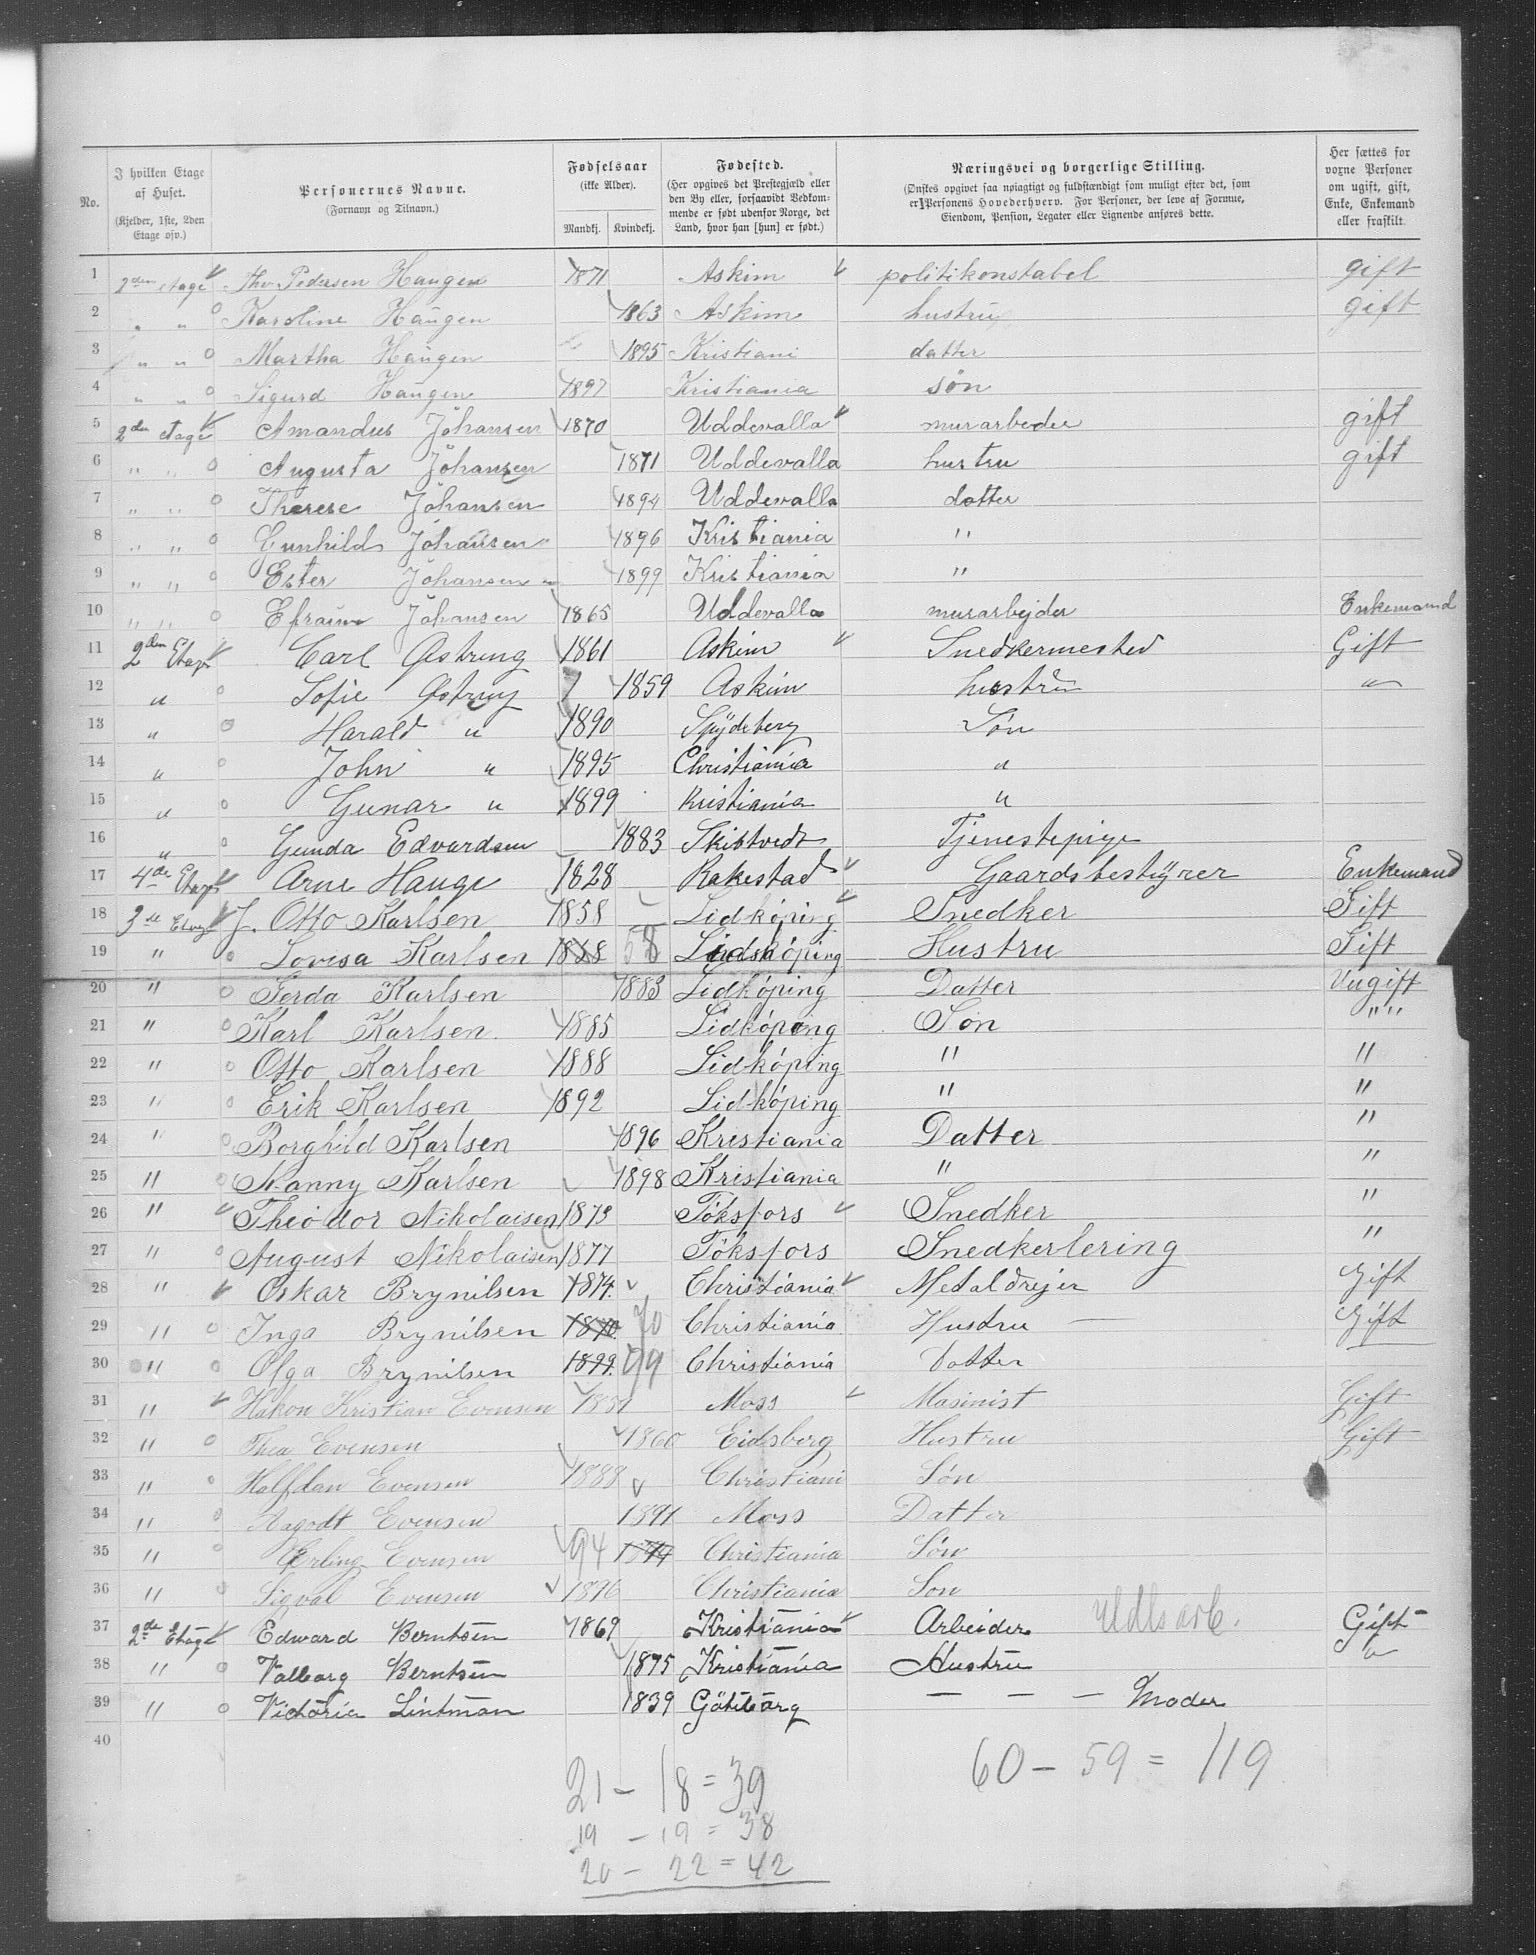 No.
I hvilken Etage af Huset. (Kjelder, 1ste, 2den Etage osv.)
Personernes Navne. (Fornavn og Tilnavn.)
Fødselsaar (ikke Alder). Mandkj. Kvindekj.
Fødested. (Her opgives det Prestegjæld eller den By eller, forsaavidt Vedkommende er født udenfor Norge, det Land, hvor han [hun] er født.)
Næringsvei og borgerlige Stilling. (Ønskes opgivet saa nøiagtigt og fuldstændigt som muligt efter det, som er Personens Hovederhverv. For Personer, der leve af Formue, Eiendom, Pension, Legater eller Lignende anføres dette.)
Her sættes for voxne Personer om ugift, gift, Enke, Enkemand eller fraskilt.
1 2den etage Thv Pedersen Haugen 1871 Askim politikonstabel gift
2 " " Karoline Haugen 1863 Askim hustru gift
3 " " Martha Haugen 1895 Kristiani datter
4 " " Sigurd Haugen 1897 Kristiania søn
5 2den etage Amandus Johansen 1870 Uddevalla murarbeder gift
6 " " Augusta Johansen 1871 Uddevalla hustru gift
7 " " Therese Johansen 1894 Uddevalla datter
8 " " Gunhild Johansen 1896 Kristiania "
9 " " Ester Johansen 1899 Kristiania "
10 " " Efraim Johansen 1865 Uddevalla murarbejder Enkemand
11 2den Etage Carl Østreng 1861 Askim Snedkermester Gift
12 " Sofie Østreng 1859 Askim hustru "
13 " Harald " 1890 Spydeberg Søn
14 " John " 1895 Christiania "
15 " Gunar " 1899 Kristiania "
16 " Gunda Edvardsen 1883 Skibtvedt Tjenestepige
17 4de Etage Arne Hauge 1828 Rakestad Gaardsbestyrer Enkemand
18 3de Etage J. Otto Karlsen 1858 Lidköping Snedker Gift
19 " Lovisa Karlsen 1858 58 Lidsköping Hustru Gift
20 " Gerda Karlsen 1883 Lidköping Datter Uugift
21 " Karl Karlsen. 1885 Lidköping Søn " "
22 " Otto Karlsen 1888 Lidköping " "
23 " Erik Karlsen 1892 Lidköping " "
24 " Borghild Karlsen 1896 Kristiania Datter "
25 " Nanny Karlsen 1898 Kristiania " "
26 " Theodor Nikolaisen 1873 Töksfors Snedker "
27 " August Nikolaisen 1877 Töksfors Snedkerlering "
28 " Oskar Brynilsen 1874. Christiania Metaldrejer Gift
29 " Inga Brynilsen 1870 70 Christiania Hustru Gift
30 " Olga Brynilsen 1899. 99 Christiania Datter
31 " Hakon Kristian Evensen Moss Masinist Gift
32 " Thea Evensen 1860 Eidsberg Hustru Gift
33 " Halfdan Evensen 1888 Christiani Søn
34 " Evensen 1891 Moss Datter
35 " Erling Evensen 94 1894 Christiania Søn
36 " Sigval Evensen 1896 Christiania Søn
37 2de Etage Edward Berntsen 1869 Kristiania Arbeider Udlsarb. Gift
38 " Valborg Berntsen 1875 Kristiania Hustru "
39 " Victoria Lintman 1839 Göteborg — — — Moder
40
21 – 18 = 39
60 – 59 = 119
19 – 19 = 38
20 – 22 = 42